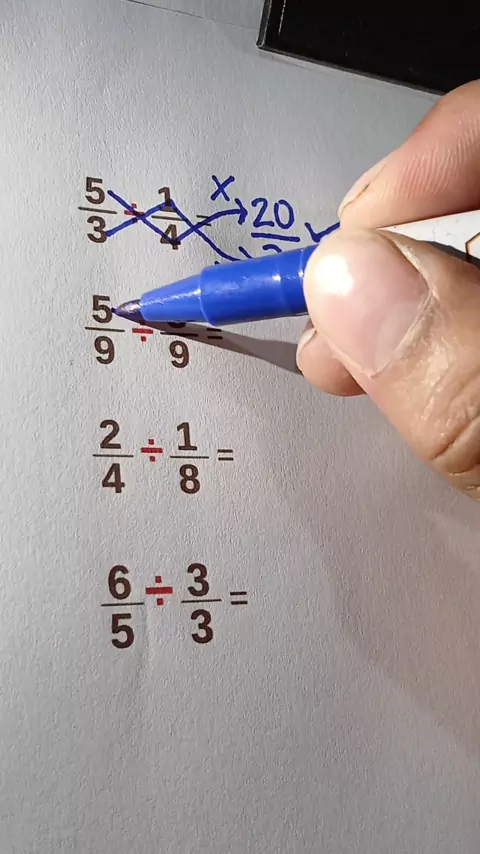 5/3 ÷ 1/4 = x 20
5/9 ÷ /9 =
2/4 ÷ 1/8 =
6/5 ÷ 3/3 =